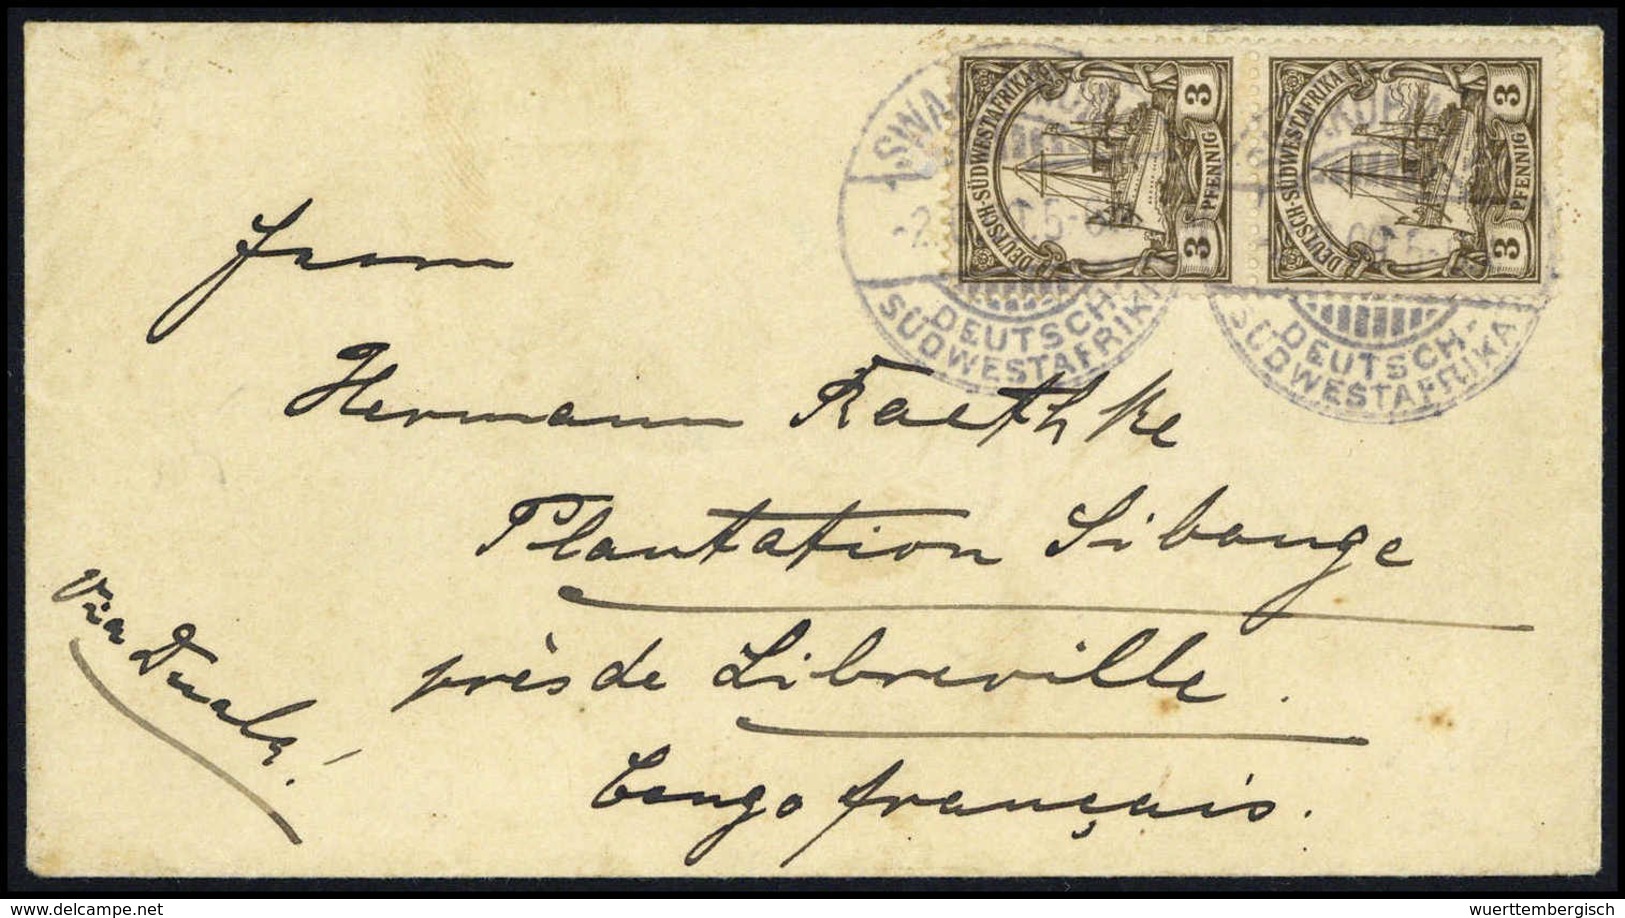 DEUTSCH-SÜDWESTAFRIKA
3 PFENNIG 3
DEUTSCH-SÜDWESTAFRIKA
3 PFENNIG 3
DEUTSCH-
SÜDWESTAFRIKA
DEUTSCH-
SÜDWESTAFRIKA
Herrn
Hermann Raethke
Plantation Sibange
près de Libreville.
Congo français.
Via Duala!
www.delcampe.net
wuerttembergisch